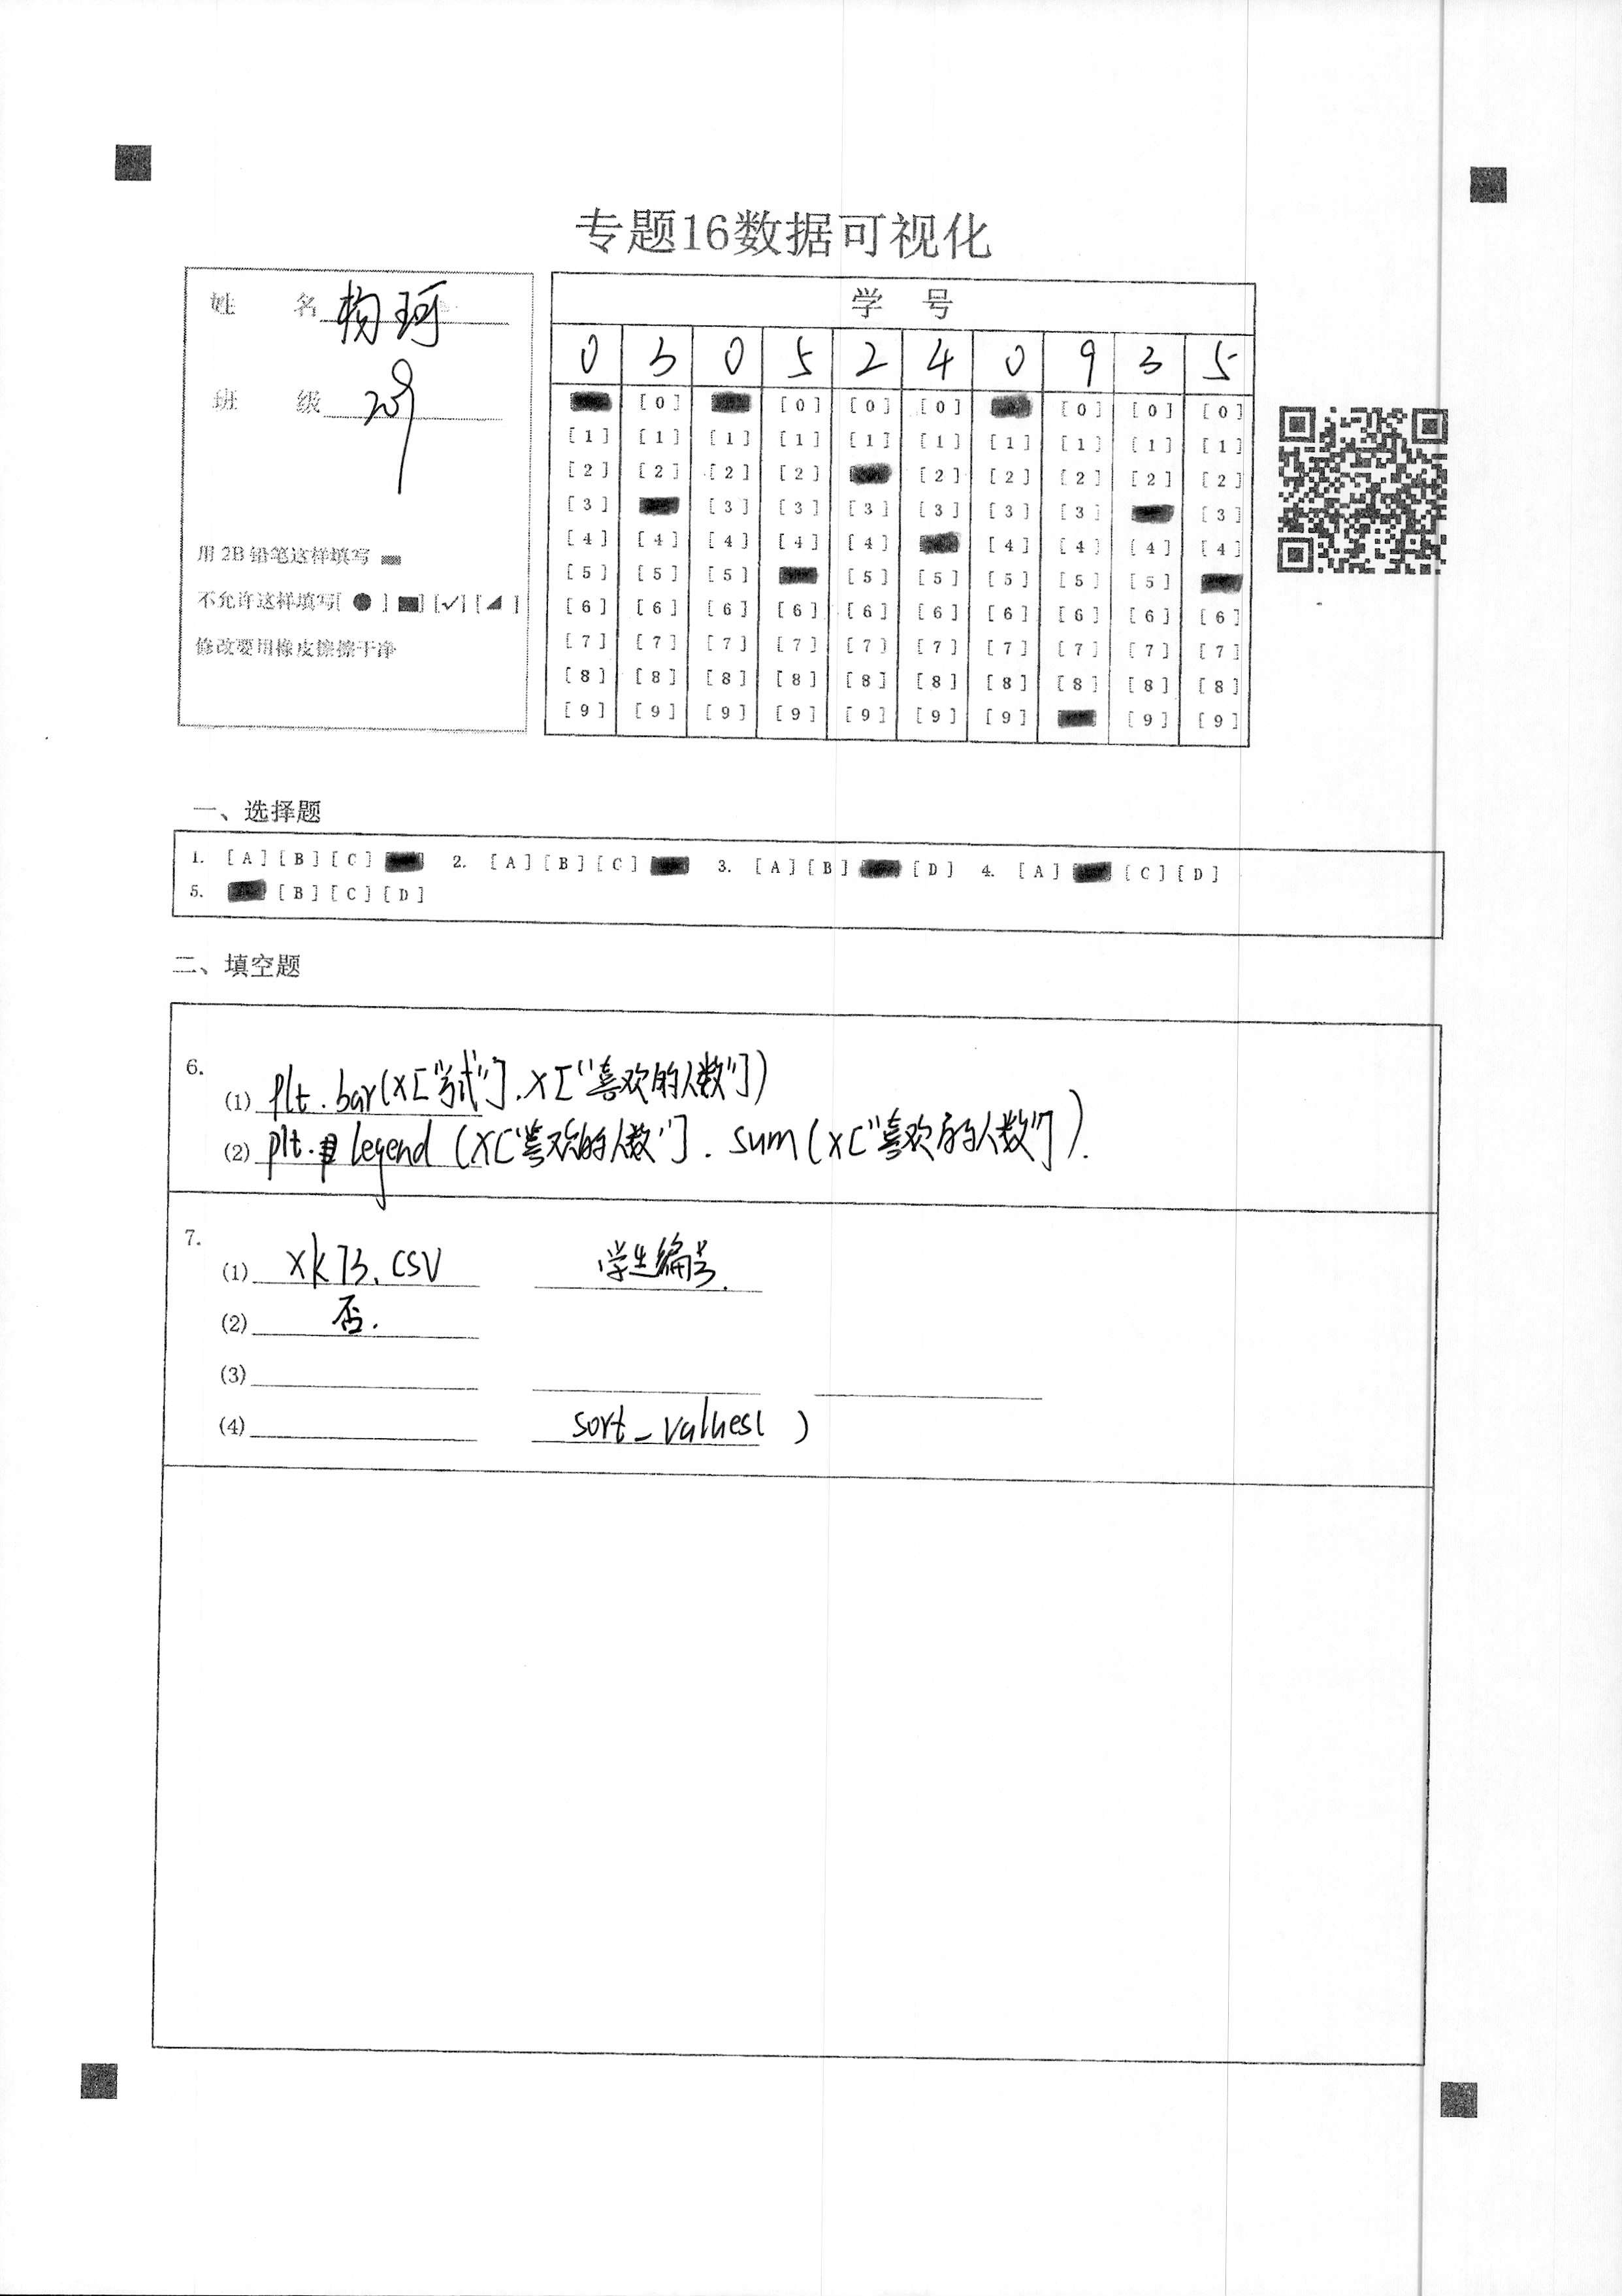 专题16数据可视化
姓 名 杨珂
班 级 209
用 2B 铅笔这样填写
不允许这样填写[ ● ] ■] [✓] [◢ ]
修改要用橡皮擦擦干净
学 号
0 3 0 5 2 4 0 9 3 5
[0] [0] [0] [0] [0] [0] [0]
[1] [1] [1] [1] [1] [1] [1] [1] [1] [1]
[2] [2] [2] [2] [2] [2] [2] [2] [2]
[3] [3] [3] [3] [3] [3] [3] [3]
[4] [4] [4] [4] [4] [4] [4] [4] [4]
[5] [5] [5] [5] [5] [5] [5] [5]
[6] [6] [6] [6] [6] [6] [6] [6] [6] [6]
[7] [7] [7] [7] [7] [7] [7] [7] [7] [7]
[8] [8] [8] [8] [8] [8] [8] [8] [8] [8]
[9] [9] [9] [9] [9] [9] [9] [9] [9]
一、选择题
1. [A] [B] [C] 2. [A] [B] [C] 3. [A] [B] [D] 4. [A] [C] [D]
5. [B] [C] [D]
二、填空题
6.
(1) plt.bar(x["方式"],x["喜欢的人数"])
(2) plt. legend (x["喜欢的人数"]. sum(x["喜欢的人数"]).
7.
(1) xk73.csv 学生编号.
(2) 否.
(3)
(4) sort_values( )